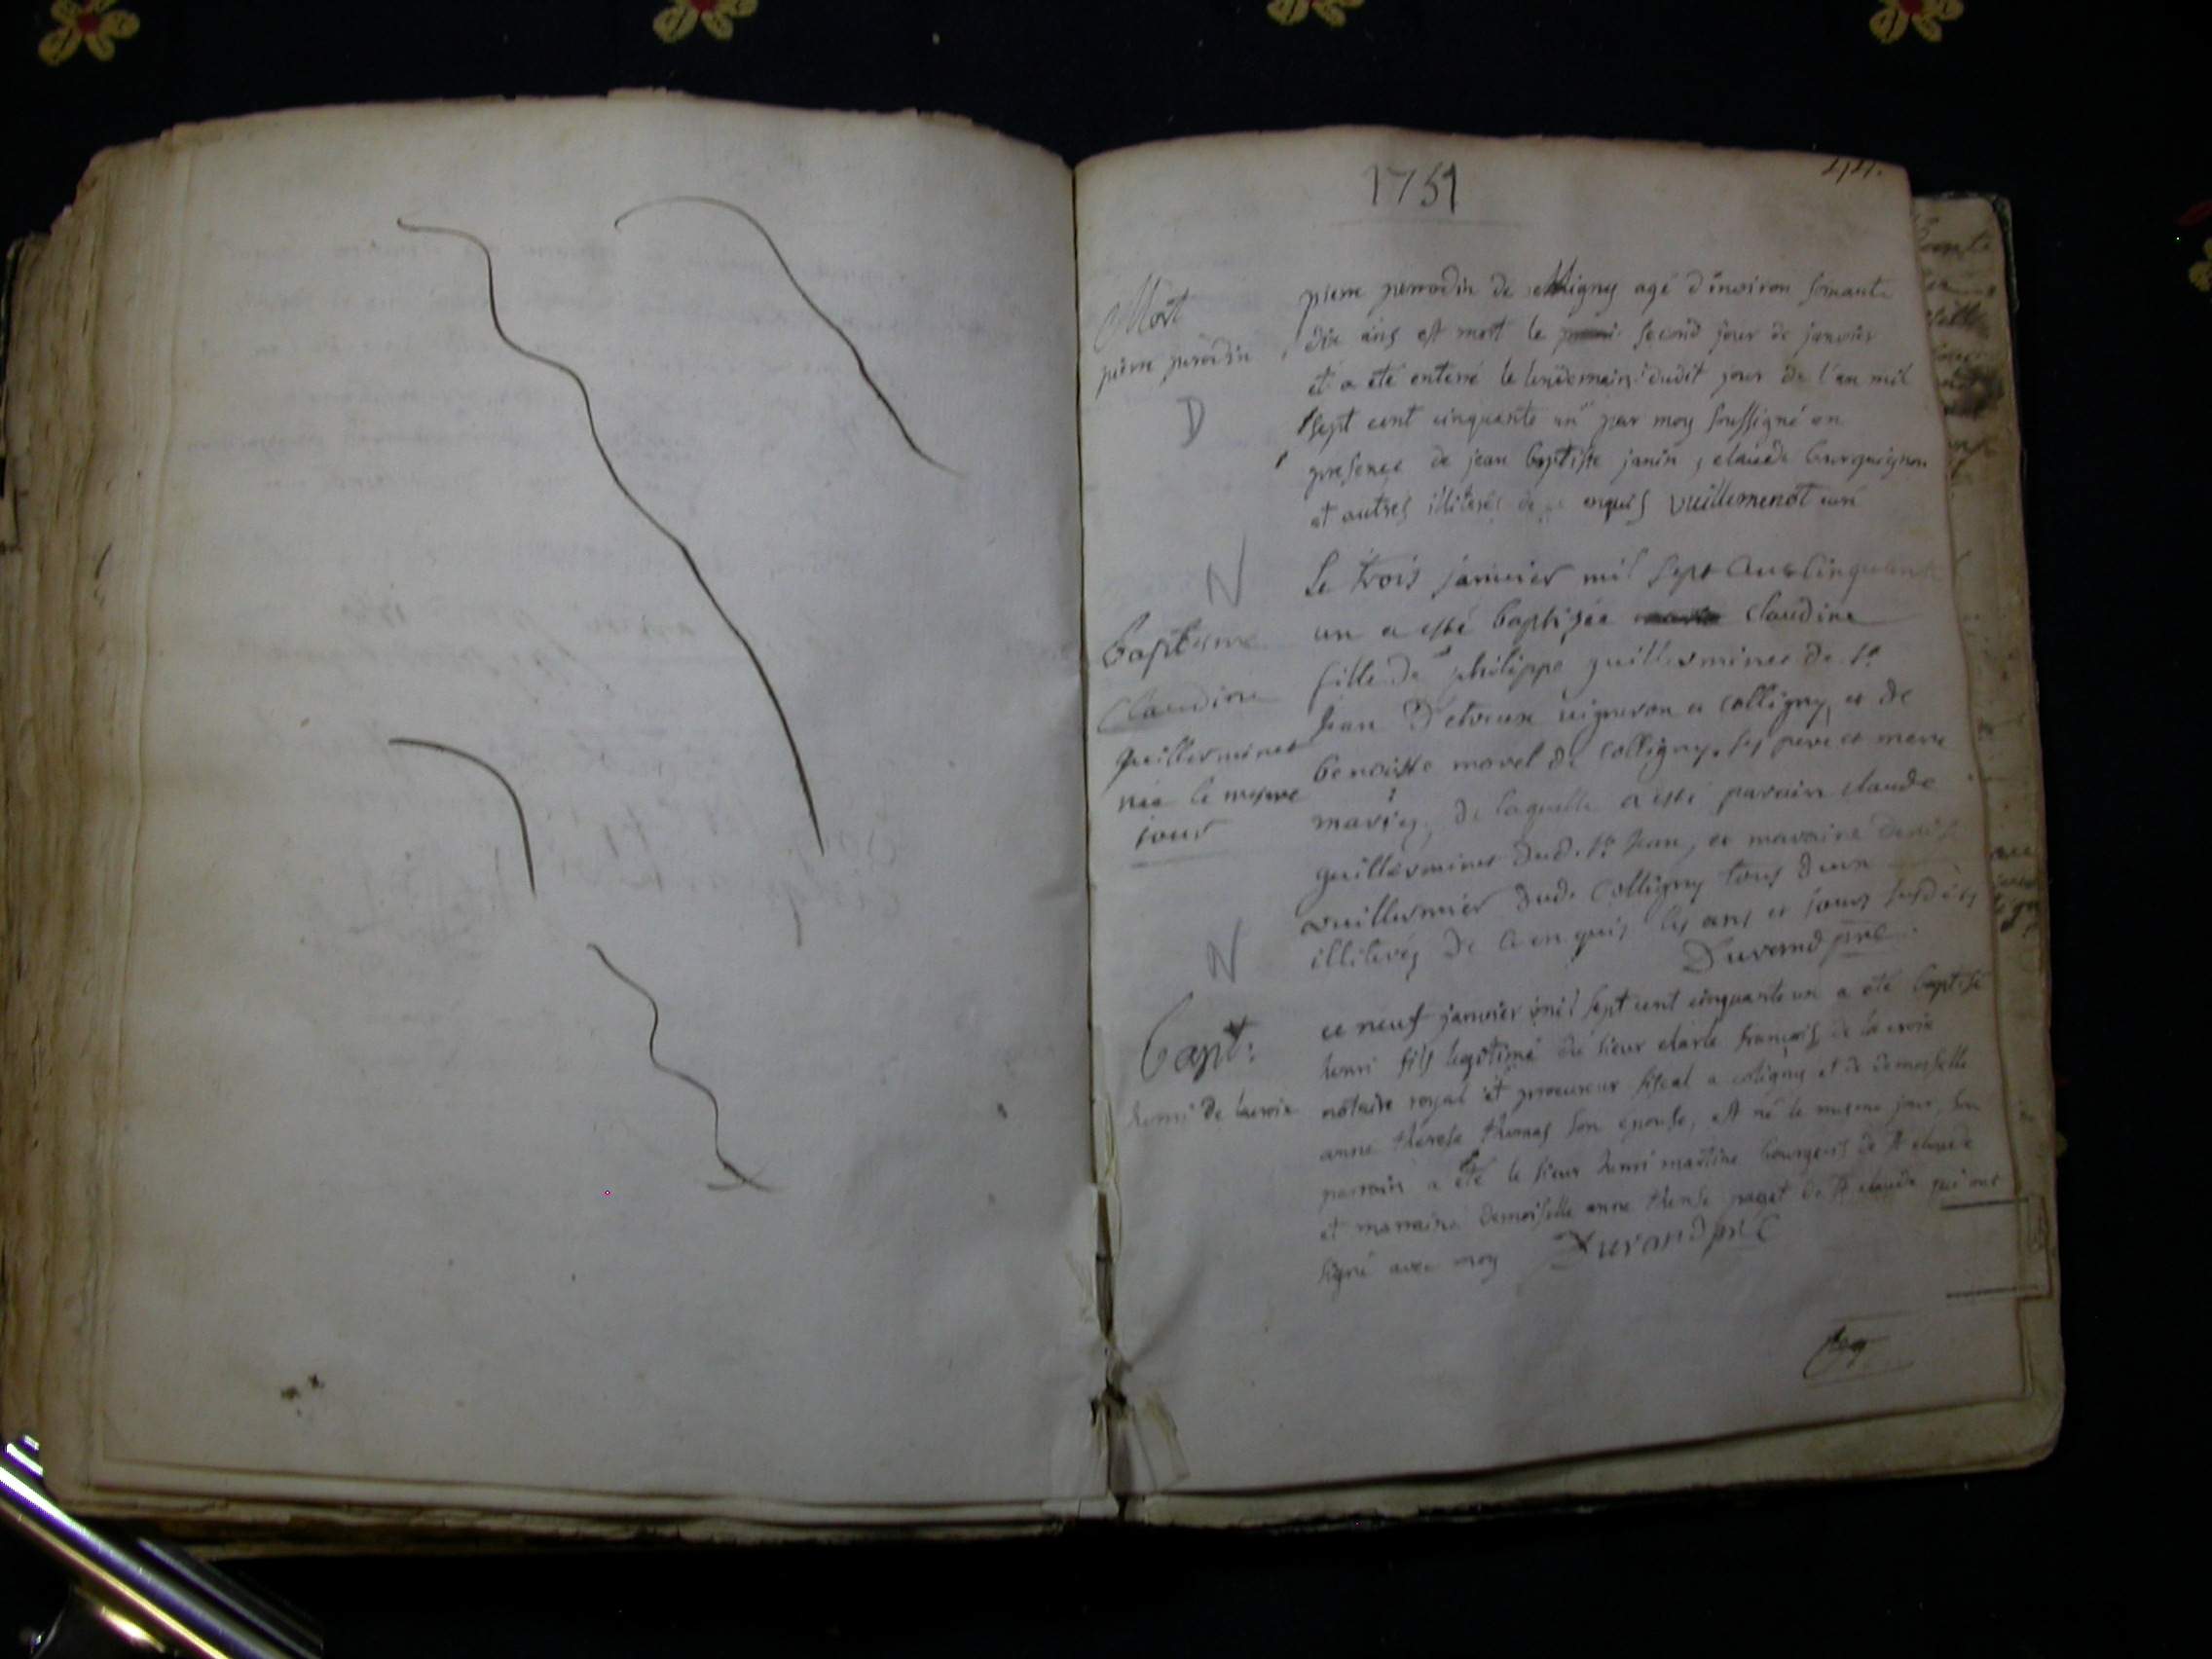 1751
Mort
pierre perrodin
D
pierre perrodin de agé d'environ soixante
dix ans est mort le second jour de janvier
et a eté enterré le lendemain dudit jour de l'an mil
sept cent cinquante un par moy soussigné en
presence de jean baptiste janin, claude bourguignon
et autres illiterés de enquis vuillemenot curé
N
baptesme
Claudine
guillerminet
née le mesme
jour
Le trois janvier mil sept cent cinquante
un a esté baptisée claudine
fille de philippe guillerminet de st
Jean D'etreux vigneron a colligny, et de
benoiste morel de colligny, ses pere et mere
mariez, de laquelle a esté parain claude
guillerminet dud. st Jean, et maraine denise
vuillermier dud. Colligny tous deux
illiterez de ce enquis les ans et jour susdits
Durand ptre
N
bapt:
henri de lacroix
ce neuf janvier mil sept cent cinquante un a eté baptisé
henri fils legitime du sieur charle françois de la croix
notaire royal et procureur fiscal a coligny et de demoiselle
anne therese thomas son epouse, est né le mesme jour, son
parrain a eté le sieur henri martine bourgeois de st claude
et marraine demoiselle anne therese paget de st claude qui ont
signé avec moy Durand ptre